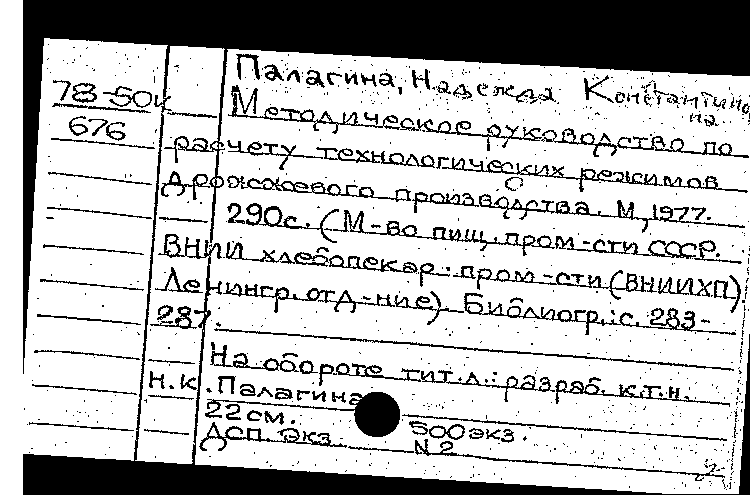 Палагина, Надежда Константинов
на.
78-50к
676
Методическое руководство по
расчету технологических режимов
дрожжевого производства. М., 1977.
290с. (М-во пищ. пром-сти СССР.
ВНИИ хлебопекар. пром-сти (ВНИИХП),
Ленингр. отд-ние). Библиогр.: с. 283-
287.
На обороте тит.л.: разраб. к.т.н.
Н.К. Палагина
22см. 500экз.
ДСП. Экз. N2